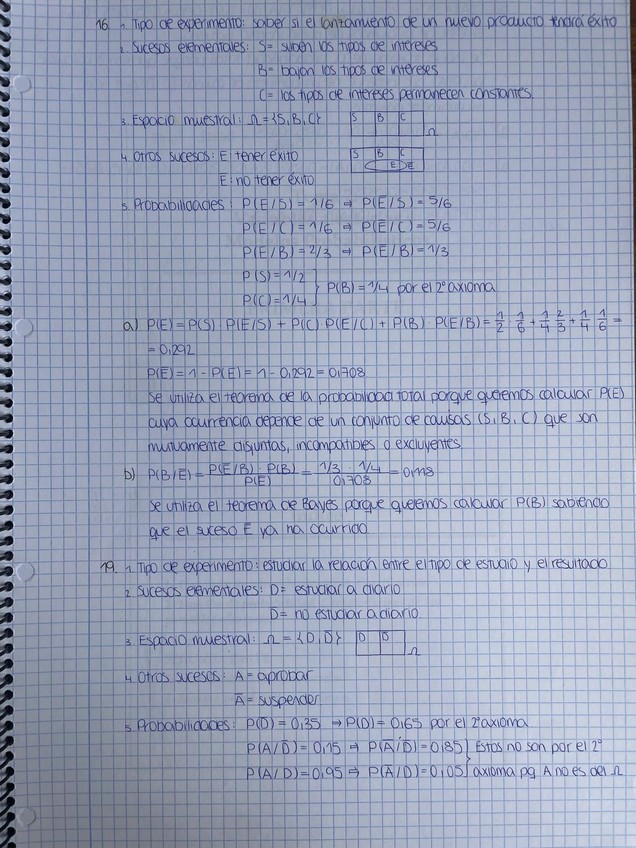 16. 1. Tipo de experimento: saber si el lanzamiento de un nuevo producto tendrá éxito
2. Sucesos elementales: S= suben los tipos de intereses
B= bajan los tipos de intereses
C= los tipos de intereses permanecen constantes.
3. Espacio muestral: Ω = {S, B, C} S B C Ω
4. Otros sucesos: E tener éxito S B C E E̅
E̅: no tener éxito
5. Probabilidades: P(E/S) = 1/6 ⇒ P(E̅/S) = 5/6
P(E/C) = 1/6 ⇒ P(E̅/C) = 5/6
P(E/B) = 2/3 ⇒ P(E̅/B) = 1/3
P(S) = 1/2
P(C) = 1/4 } P(B) = 1/4 por el 2º axioma
a) P(E) = P(S) · P(E/S) + P(C) · P(E/C) + P(B) · P(E/B) = 1/2 · 1/6 + 1/4 · 2/3 + 1/4 · 1/6 =
= 0,292
P(E̅) = 1 - P(E) = 1 - 0,292 = 0,708
Se utiliza el teorema de la probabilidad total porque queremos calcular P(E)
cuya ocurrencia depende de un conjunto de causas (S, B, C) que son
mutuamente disjuntas, incompatibles o excluyentes
b) P(B/E̅) = P(E̅/B) · P(B) / P(E̅) = 1/3 · 1/4 / 0,708 = 0,118
Se utiliza el teorema de Bayes porque queremos calcular P(B) sabiendo
que el suceso E̅ ya ha ocurrido
19. 1. Tipo de experimento: estudiar la relación entre el tipo de estudio y el resultado
2. Sucesos elementales: D = estudiar a diario
D̅ = no estudiar a diario
3. Espacio muestral: Ω = {D, D̅} D D̅ Ω
4. Otros sucesos: A = aprobar
A̅ = suspender
5. Probabilidades: P(D̅) = 0,35 ⇒ P(D) = 0,65 por el 2º axioma
P(A/D̅) = 0,15 ⇒ P(A̅/D̅) = 0,85 } Estos no son por el 2º
P(A/D) = 0,95 ⇒ P(A̅/D) = 0,05 } axioma pq A no es del Ω